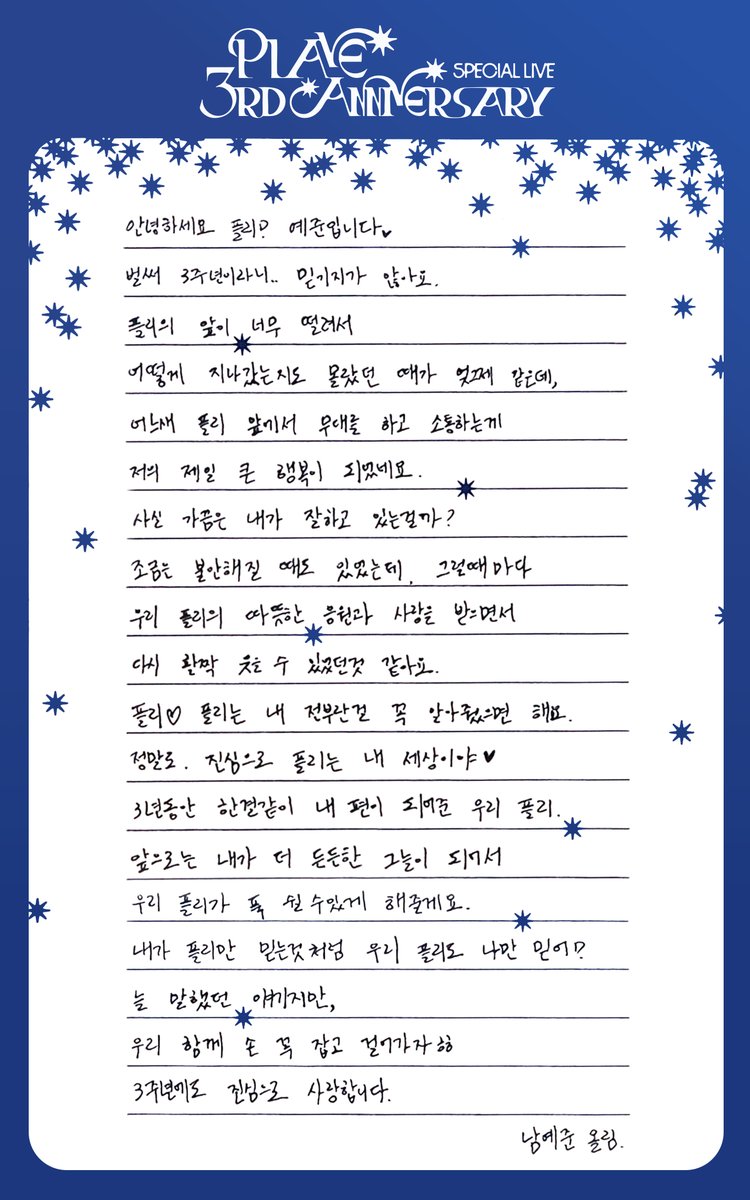 PLAVE
3RD ANNIVERSARY SPECIAL LIVE
안녕하세요 플리? 예준입니다♥
벌써 3주년이라니.. 믿기지가 않아요.
플리의 앞이 너무 떨려서
어떻게 지나갔는지도 몰랐던 때가 엊그제 같은데,
어느새 플리 앞에서 무대를 하고 소통하는게
저의 제일 큰 행복이 되었네요.
사실 가끔은 내가 잘하고 있는걸까?
조금은 불안해질 때도 있었는데, 그럴때마다
우리 플리의 따뜻한 응원과 사랑을 받으면서
다시 활짝 웃을 수 있었던것 같아요.
플리♡ 플리는 내 전부란걸 꼭 알아줬으면 해요.
정말로. 진심으로 플리는 내 세상이야♥
3년동안 한결같이 내 편이 되어준 우리 플리.
앞으로는 내가 더 든든한 그늘이 되어서
우리 플리가 푹 쉴 수있게 해줄게요.
내가 플리만 믿는것처럼 우리 플리도 나만 믿어?
늘 말했던 얘기지만,
우리 함께 손 꼭 잡고 걸어가자ㅎㅎ
3주년에도 진심으로 사랑합니다.
남예준 올림.